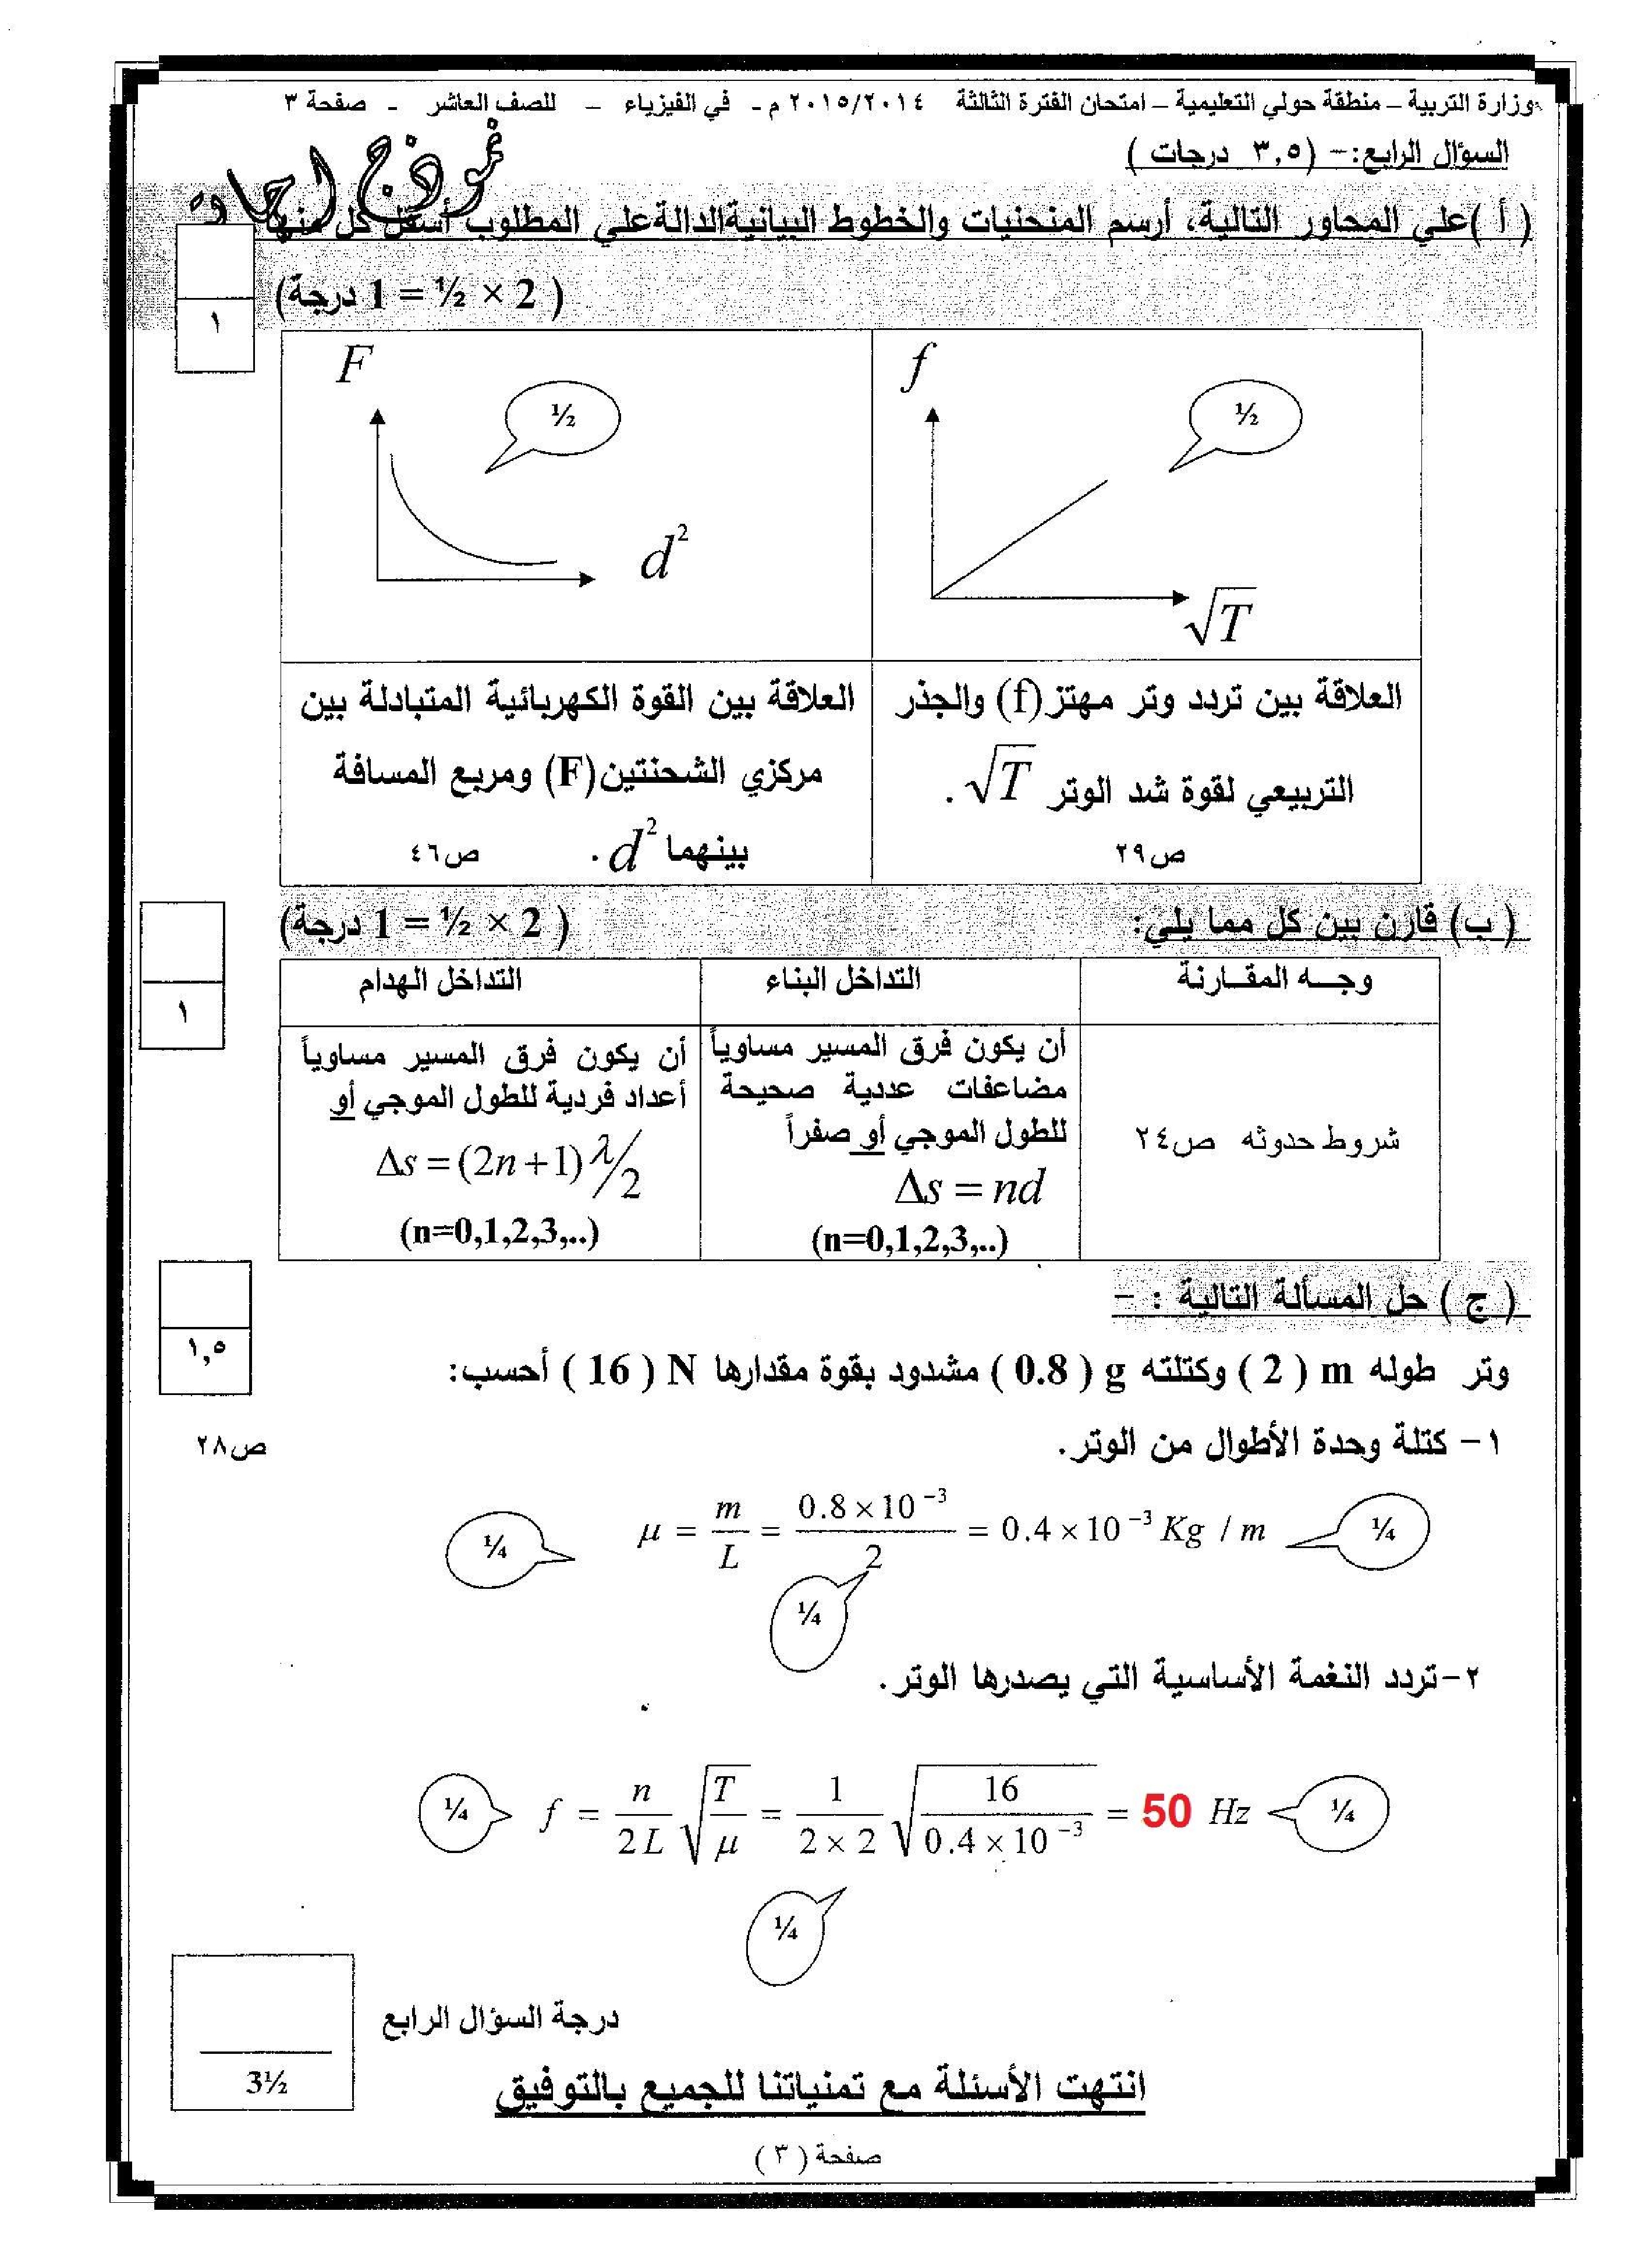 وزارة التربية – منطقة حولي التعليمية – امتحان الفترة الثالثة ٢٠١٥/٢٠١٤ م - في الفيزياء – للصف العاشر - صفحة ٣
السؤال الرابع:– (٣,٥ درجات )
نموذج اجابة
( أ )علي المحاور التالية، أرسم المنحنيات والخطوط البيانيةالدالةعلي المطلوب أسفل كل منها
( 2 × ½ = 1 درجة)
١
f
½
√T
F
½
d²
العلاقة بين تردد وتر مهتز(f) والجذر
التربيعي لقوة شد الوتر √T .
ص٢٩
العلاقة بين القوة الكهربائية المتبادلة بين
مركزي الشحنتين(F) ومربع المسافة
بينهما d² . ص٤٦
( ب) قارن بين كل مما يلي: ( 2 × ½ = 1 درجة)
١
وجـــه المقـــارنة
التداخل البناء
التداخل الهدام
شروط حدوثه ص٢٤
أن يكون فرق المسير مساوياً
مضاعفات عددية صحيحة
للطول الموجي أو صفراً
Δs = nd
(n=0,1,2,3,..)
أن يكون فرق المسير مساوياً
أعداد فردية للطول الموجي أو
Δs = (2n+1) λ/2
(n=0,1,2,3,..)
( ج ) حل المسألة التالية : –
١,٥
وتر طوله m ( 2 ) وكتلته g ( 0.8 ) مشدود بقوة مقدارها N ( 16 ) أحسب:
١– كتلة وحدة الأطوال من الوتر.
ص٢٨
¼ μ = m/L = 0.8 × 10⁻³ / 2 = 0.4 × 10⁻³ Kg / m ¼
¼
٢–تردد النغمة الأساسية التي يصدرها الوتر.
¼ f = n/2L √T/μ = 1/2 × 2 √16/0.4 × 10⁻³ = 50 Hz ¼
¼
درجة السؤال الرابع
3½
انتهت الأسئلة مع تمنياتنا للجميع بالتوفيق
صفحة ( ٣ )